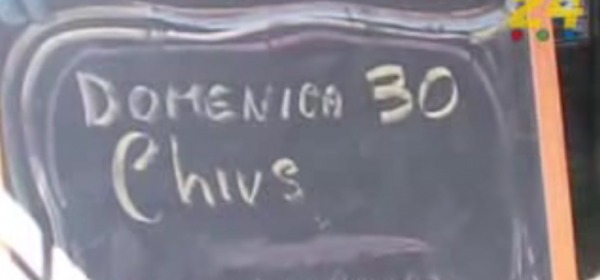 DOMENICA 30
Chivs